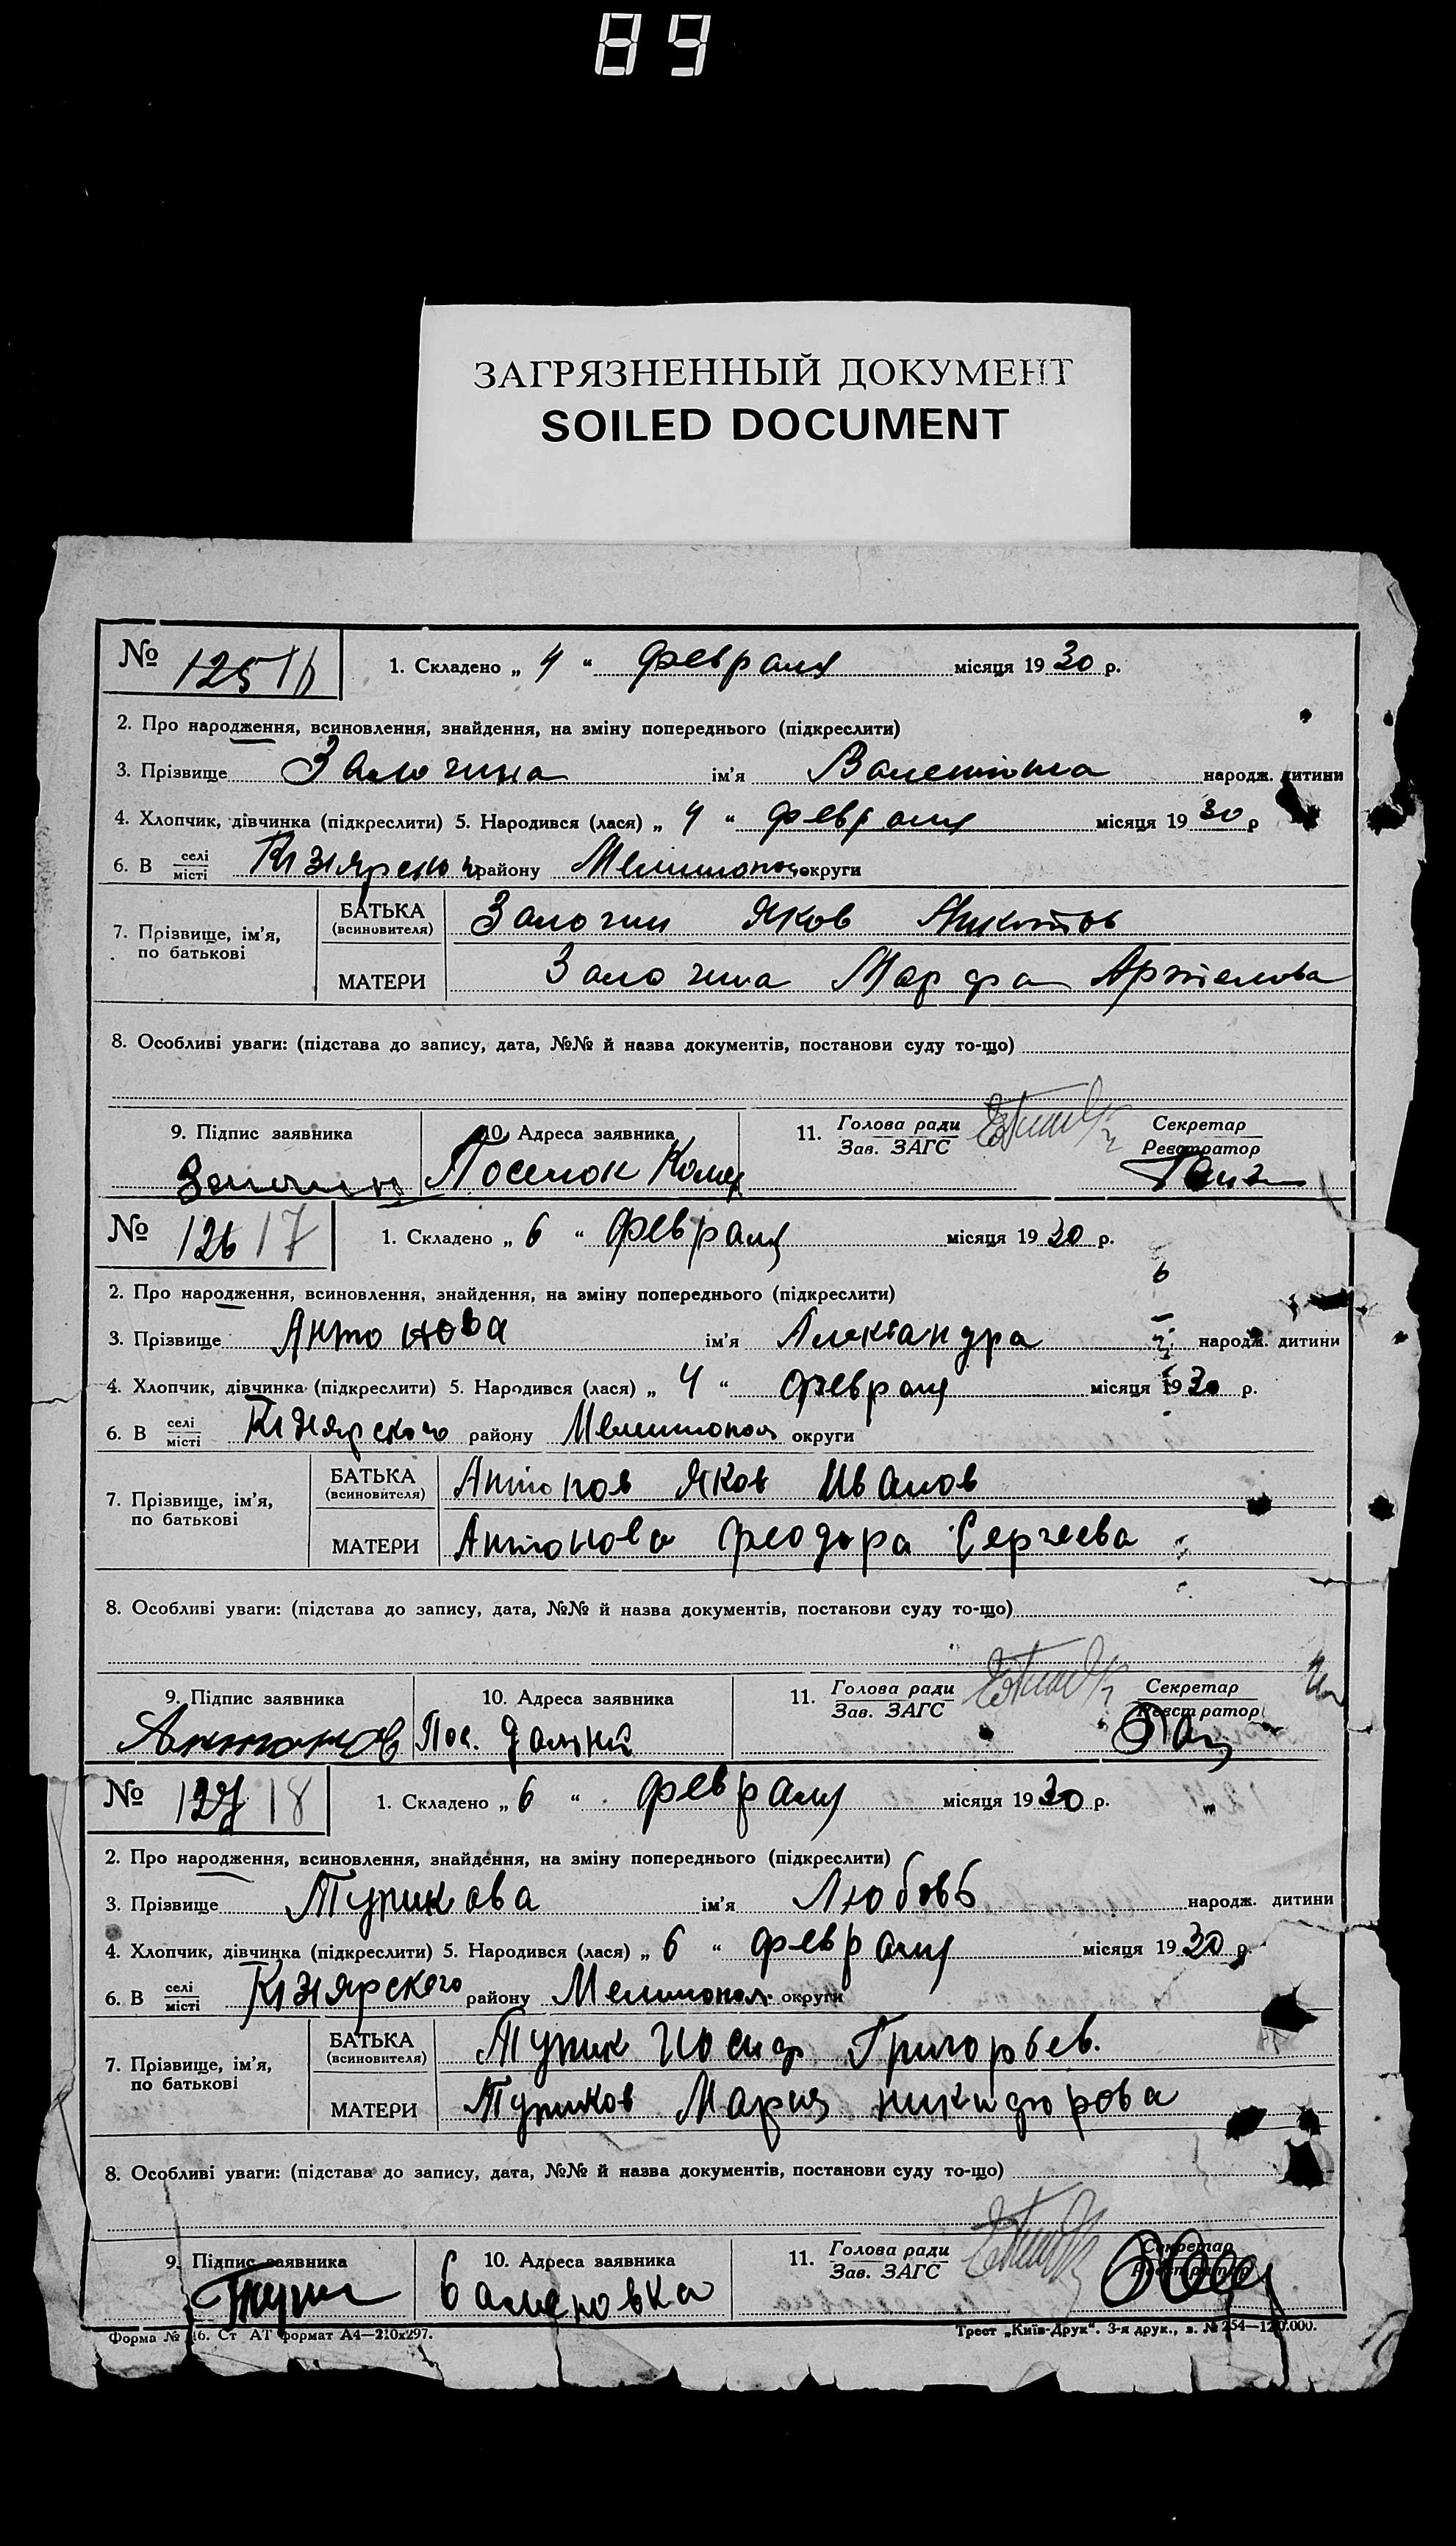 89
ЗАГРЯЗНЕННЫЙ ДОКУМЕНТ
SOILED DOCUMENT
№ 125 16
1. Складено „ 4 “ февраля місяця 1930 р.
2. Про народження, всиновлення, знайдення, на зміну попереднього (підкреслити)
3. Прізвище Залогина ім’я Валентина народж. дитини
4. Хлопчик, дівчинка (підкреслити) 5. Народився (лася) „ 4 “ февраля місяця 1930 р
6. В селі/місті Кизиярского району Мелитопол округи
7. Прізвище, ім’я, по батькові
БАТЬКА (всиновителя) Залогин Яков
МАТЕРИ Залогина Марфа
8. Особливі уваги: (підстава до запису, дата, №№ й назва документів, постанови суду то-що)
9. Підпис заявника 10. Адреса заявника 11. Голова ради/Зав. ЗАГС Секретар/Реєстратор
Поселок
№ 126 17
1. Складено „ 6 “ февраля місяця 1930 р.
2. Про народження, всиновлення, знайдення, на зміну попереднього (підкреслити)
3. Прізвище Антонова ім’я Александра народж. дитини
4. Хлопчик, дівчинка (підкреслити) 5. Народився (лася) „ 4 “ февраля місяця 1930 р.
6. В селі/місті Кизиярского району Мелитопол округи
7. Прізвище, ім’я, по батькові
БАТЬКА (всиновителя) Антонов Яков Иванов
МАТЕРИ Антонова Феодора Сергеева
8. Особливі уваги: (підстава до запису, дата, №№ й назва документів, постанови суду то-що)
9. Підпис заявника 10. Адреса заявника 11. Голова ради/Зав. ЗАГС Секретар/Реєстратор
Антонов Пос.
№ 127 18
1. Складено „ 6 “ февраля місяця 1930 р.
2. Про народження, всиновлення, знайдення, на зміну попереднього (підкреслити)
3. Прізвище Тупикова ім’я Любовь народж. дитини
4. Хлопчик, дівчинка (підкреслити) 5. Народився (лася) „ 6 “ февраля місяця 1930 р.
6. В селі/місті Кизиярского району Мелитопол. округи
7. Прізвище, ім’я, по батькові
БАТЬКА (всиновителя) Тупик Иосиф Григорьев.
МАТЕРИ Тупиков Мария никифорова
8. Особливі уваги: (підстава до запису, дата, №№ й назва документів, постанови суду то-що)
9. Підпис заявника 10. Адреса заявника 11. Голова ради/Зав. ЗАГС Секретар/Реєстратор
Форма № 16. Ст АТ формат А4—210х297.
Трест „Київ-Друк“. 3-я друк., з. № 254—120.000.